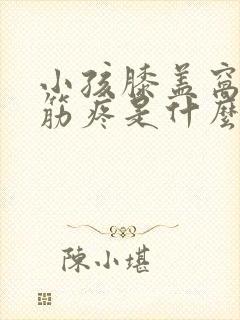 小孩膝盖窝
筋疼是什麼
陳小堪